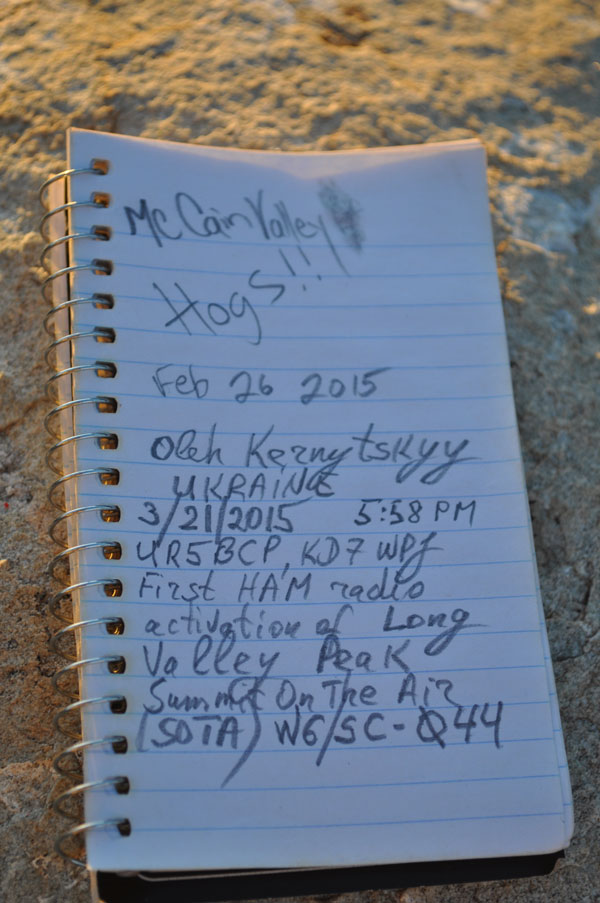 McCain Valley
Hogs!!!
Feb 26 2015
Oleh Kernytskyy
UKRAINE
3/21/2015 5:58 PM
UR5BCP, KD7WPJ
First HAM radio
activation of Long
Valley Peak
Summit On The Air
(SOTA) W6/SC-Ø44